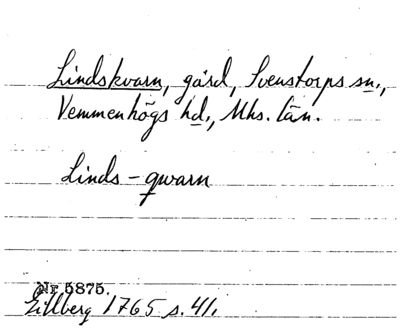 Lindskvarn, gård, Svenstorps sn.,
Vemmenhögs hd., Mhs. län.
Linds-qwarn
Nr 5875.
Gillberg 1765 s. 41.